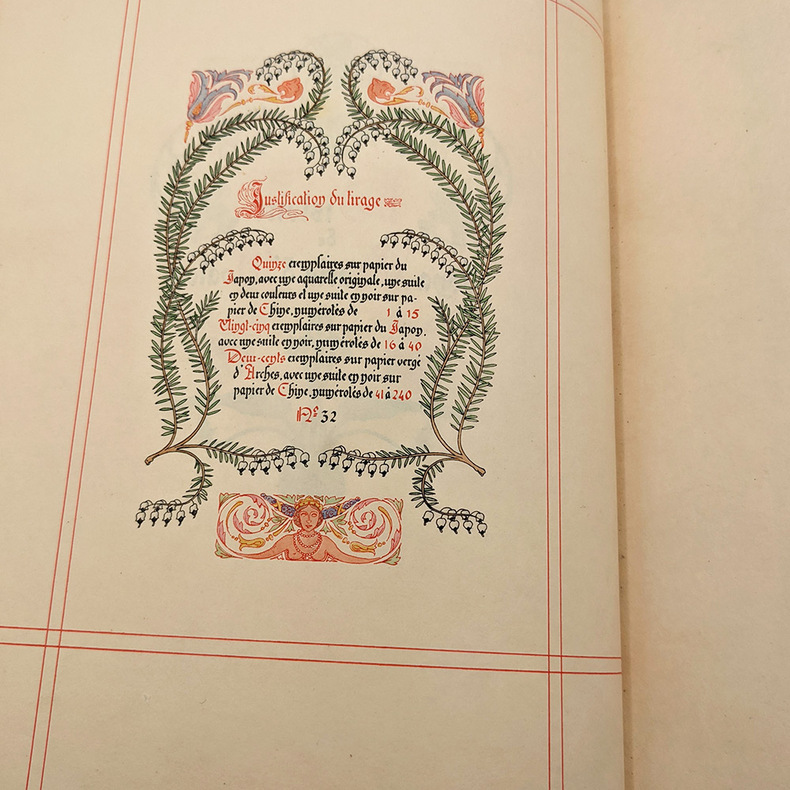 Justification du tirage
Quinze exemplaires sur papier du
Japon, avec une aquarelle originale, une suite
en deux couleurs et une suite en noir sur pa-
pier de Chine, numérotés de 1 à 15
Vingt-cinq exemplaires sur papier du Japon,
avec une suite en noir, numérotés de 16 à 40
Deux-cents exemplaires sur papier vergé
d'Arches, avec une suite en noir sur
papier de Chine, numérotés de 41 à 240
Nº 32